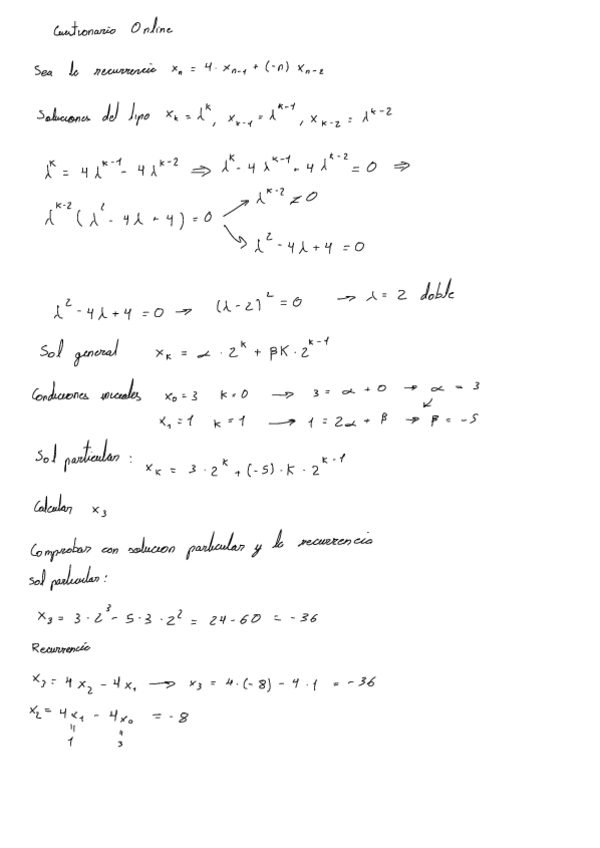 Cuestionario Online
Sea la recurrencia xₙ = 4·xₙ₋₁ + (-n) xₙ₋₂
Soluciones del tipo xₖ = λᵏ, xₖ₋₁ = λᵏ⁻¹, xₖ₋₂ = λᵏ⁻²
λᵏ = 4λᵏ⁻¹ - 4λᵏ⁻² ⇒ λᵏ - 4λᵏ⁻¹ + 4λᵏ⁻² = 0 ⇒
λᵏ⁻² (λ² - 4λ + 4) = 0 → λᵏ⁻² ≠ 0
↘ λ² - 4λ + 4 = 0
λ² - 4λ + 4 = 0 → (λ - 2)² = 0 → λ = 2 doble
Sol general xₖ = α · 2ᵏ + βk · 2ᵏ⁻¹
Condiciones iniciales x₀ = 3 k = 0 → 3 = α + 0 → α = 3
x₁ = 1 k = 1 → 1 = 2α + β → β = -5
Sol particular: xₖ = 3 · 2ᵏ + (-5) · k · 2ᵏ⁻¹
Calcular x₃
Comprobar con solucion particular y la recurrencia
Sol particular:
x₃ = 3 · 2³ - 5 · 3 · 2² = 24 - 60 = -36
Recurrencia
x₃ = 4x₂ - 4x₁ → x₃ = 4·(-8) - 4·1 = -36
x₂ = 4x₁ - 4x₀ = -8
1 3